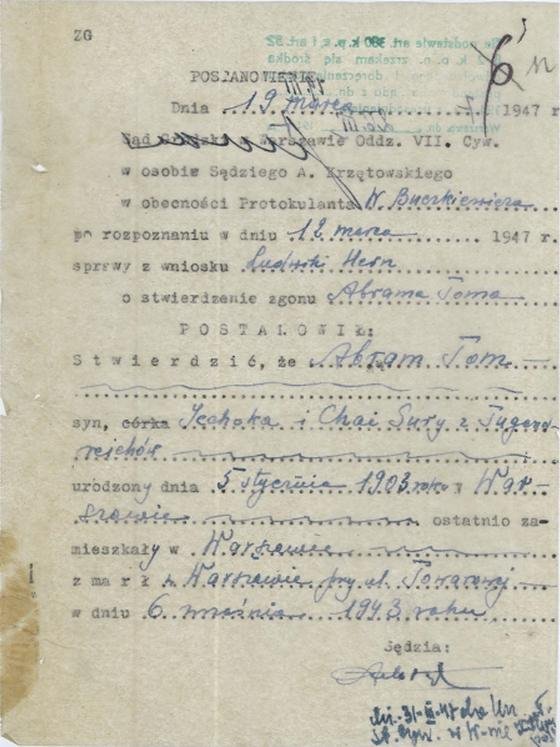 ZG
6
POSTANOWIENIE
Dnia 19 marca 1947 r.
Sąd Grodzki w Warszawie Oddz. VII. Cyw.
w osobie Sędziego A. Krzętowskiego
w obecności Protokulanta W. Buczkiewicza
po rozpoznaniu w dniu 12 marca 1947 r.
sprawy z wniosku Ludwiki Hern
o stwierdzenie zgonu Abrama Toma
POSTANOWIŁ:
Stwierdzić, że Abram Tom
syn, córka Icchoka i Chai Sury z Tugend-
reichów
urodzony dnia 5 stycznia 1903 roku w War-
szawie ostatnio za-
mieszkały w Warszawie
zmarł w Warszawie przy ul. Towarowej
w dniu 6 września 1943 roku
Sędzia: